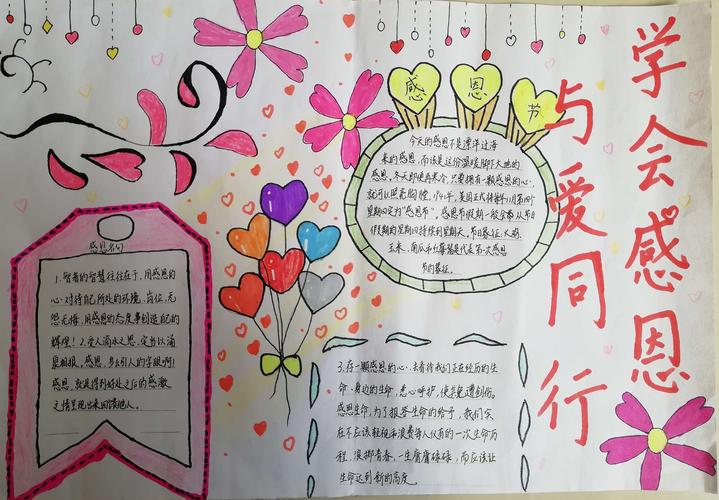 学会感恩
与爱同行
感恩节
今天的感恩不是漂洋过海
来的感恩,而该是这份温暖脚下大地的
感恩,冬天即使再寒冷,只要拥有一颗感恩的心,
就可以照亮胸膛。1941年,美国正式将每年11月第四个
星期四定为"感恩节"。感恩节假期一般会都从节日
假期的星期四持续到星期天。节日象征:火鸡、
玉米、南瓜和红莓酱是代表第一次感恩
节的象征。
感恩名句
1.智者的智慧往往在于,用感恩的
心对待自己所处的环境、岗位,无
怨无悔,用感恩的态度来创造自己的
辉煌!2.受人滴水之恩,定当以涌
泉相报。感恩,多么引人的字眼啊!
感恩,就是得到好处之后的感激
之情呈现出来回馈他人。
3.存一颗感恩的心,去看待我们正在经历的生
命、身边的生命,悉心呵护,使其免遭创伤。
感恩生命,为了报答生命的给予,我们实
在不应该轻视和浪费每人仅有的一次生命历
程,浪掷青春,一生庸庸碌碌,而应该让
生命达到新的高度。